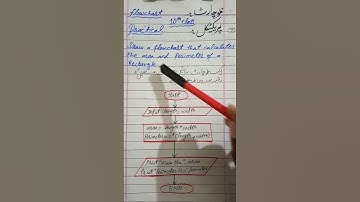 Flowchart فلوچارٹ
10th class
Practical پریکٹیکل
Draw a flowchart that calculates
the area and Perimeter of a
Rectangle
Start
Input length, width
Area = length * width
Print "Area is", area
Print "Perimeter is" Perimeter
END